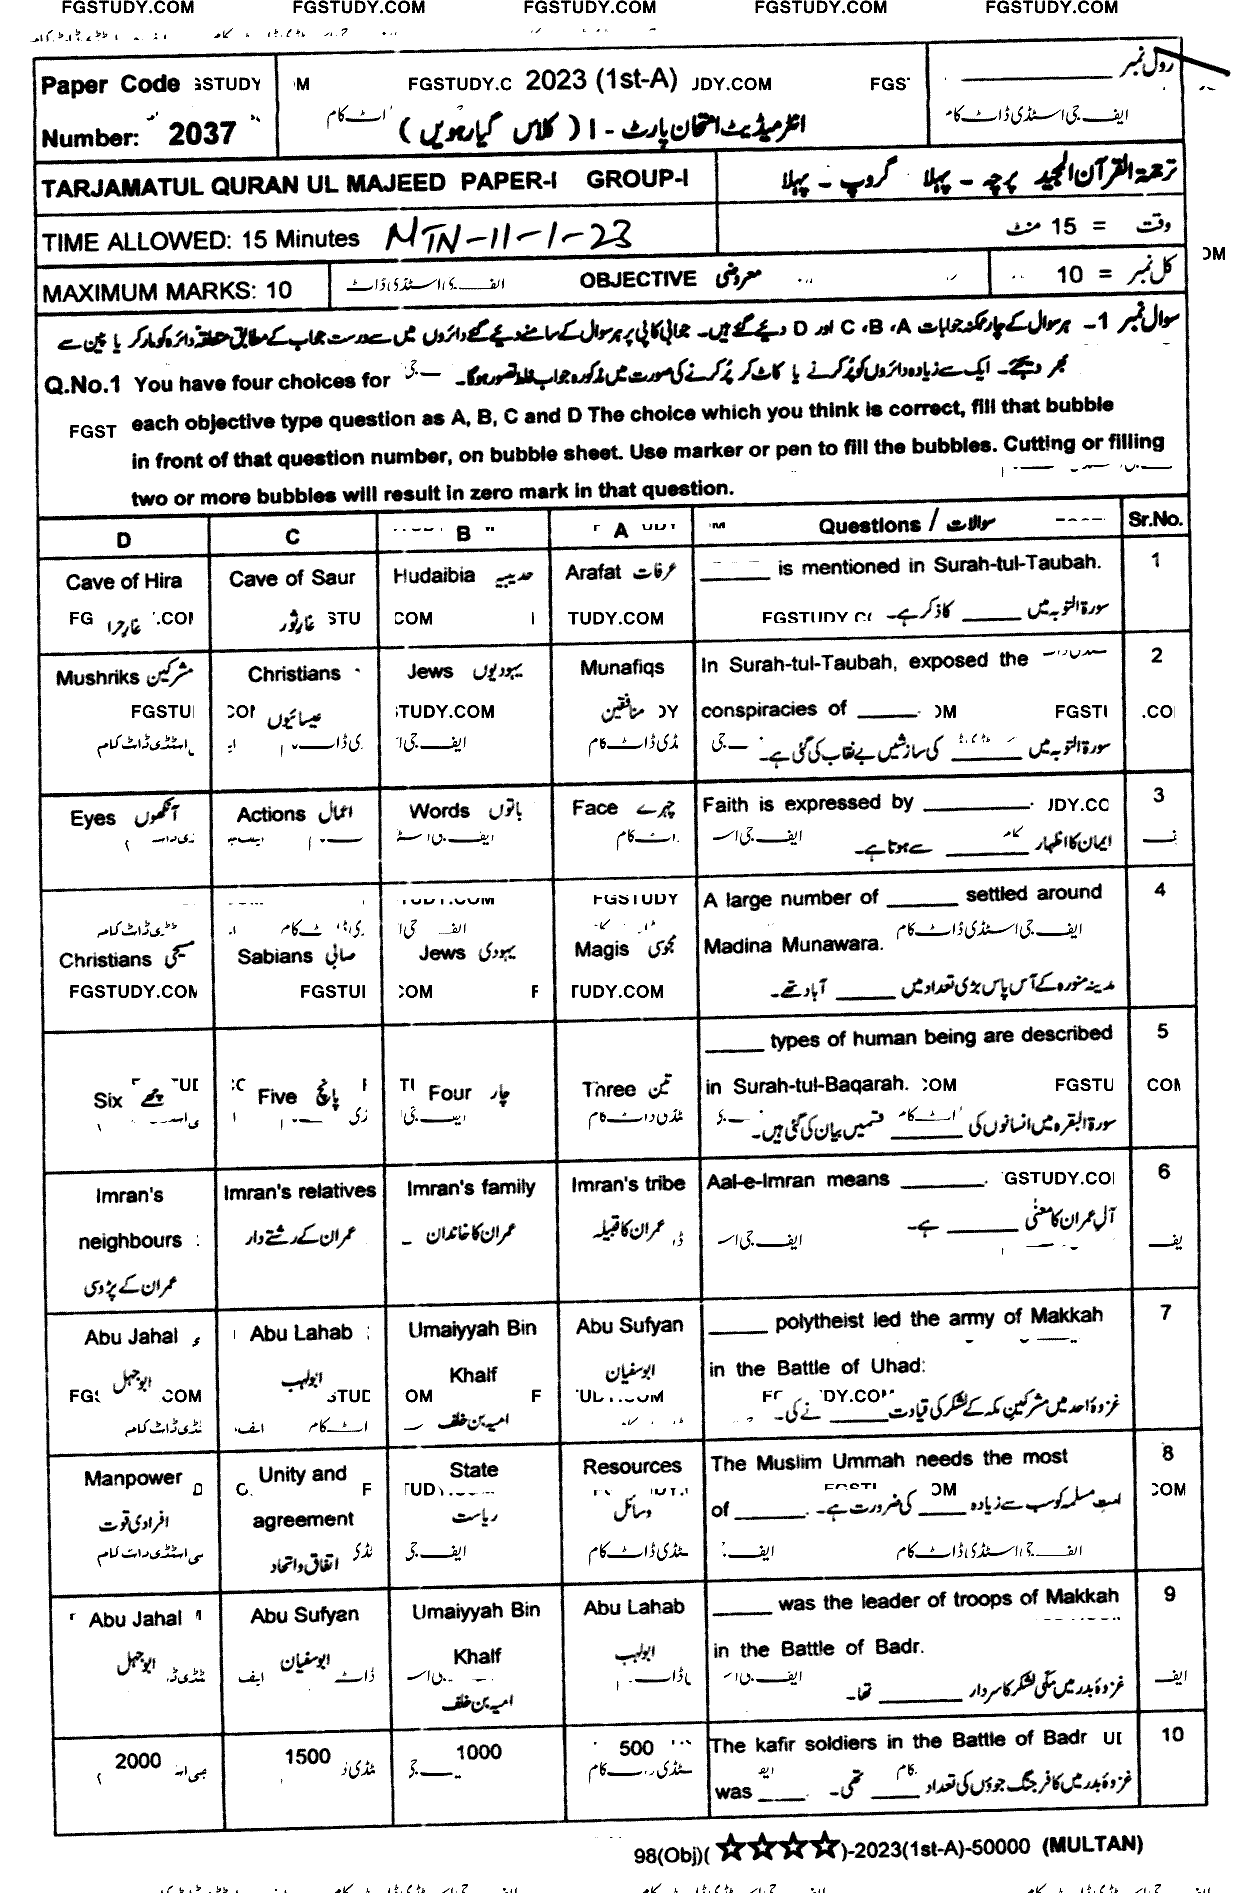 FGSTUDY.COM FGSTUDY.COM FGSTUDY.COM FGSTUDY.COM FGSTUDY.COM
Paper Code
Number: 2037
2023 (1st-A)
انٹرمیڈیٹ امتحان پارٹ - I ( کلاس گیارھویں )
رول نمبر
ایف جی اسٹڈی ڈاٹ کام
TARJAMATUL QURAN UL MAJEED PAPER-I GROUP-I
ترجمۃ القرآن المجید پرچہ - پہلا گروپ - پہلا
TIME ALLOWED: 15 Minutes MTN-11-1-23
وقت = 15 منٹ
MAXIMUM MARKS: 10
OBJECTIVE معروضی
کل نمبر = 10
سوال نمبر 1- ہر سوال کے چار ممکنہ جوابات A، B، C اور D دیئے گئے ہیں۔ جوابی کاپی پر ہر سوال کے سامنے دیئے گئے دائروں میں سے درست جواب کے مطابق متعلقہ دائرہ کو مارکر یا پین سے
بھر دیجئے۔ ایک سے زیادہ دائروں کو پُر کرنے یا کاٹ کر پُر کرنے کی صورت میں مذکورہ جواب غلط تصور ہوگا۔
Q.No.1 You have four choices for
each objective type question as A, B, C and D The choice which you think is correct, fill that bubble
in front of that question number, on bubble sheet. Use marker or pen to fill the bubbles. Cutting or filling
two or more bubbles will result in zero mark in that question.
D C B A Questions / سوالات Sr.No.
Cave of Hira Cave of Saur Hudaibia حدیبیہ Arafat عرفات _____ is mentioned in Surah-tul-Taubah. 1
غارِ حرا غارِ ثور سورۃ التوبہ میں _____ کا ذکر ہے۔
Mushriks مشرکین Christians Jews یہودیوں Munafiqs In Surah-tul-Taubah, exposed the 2
عیسائیوں منافقین conspiracies of _____.
سورۃ التوبہ میں _____ کی سازشیں بے نقاب کی گئی ہے۔
Eyes آنکھوں Actions اعمال Words باتوں Face چہرے Faith is expressed by _____. 3
ایمان کا اظہار _____ سے ہوتا ہے۔
A large number of _____ settled around 4
Christians مسیحی Sabians صابی Jews یہودی Magis مجوسی Madina Munawara.
مدینہ منورہ کے آس پاس بڑی تعداد میں _____ آباد تھے۔
_____ types of human being are described 5
Six چھے Five پانچ Four چار Three تین in Surah-tul-Baqarah.
سورۃ البقرہ میں انسانوں کی _____ قسمیں بیان کی گئی ہیں۔
Imran's Imran's relatives Imran's family Imran's tribe Aal-e-Imran means _____. 6
neighbours عمران کے رشتے دار عمران کا خاندان عمران کا قبیلہ آلِ عمران کا معنٰی _____ ہے۔
عمران کے پڑوسی
Abu Jahal Abu Lahab Umaiyyah Bin Abu Sufyan _____ polytheist led the army of Makkah 7
ابوجہل ابولہب Khalf ابوسفیان in the Battle of Uhad:
امیہ بن خلف غزوۂ احد میں مشرکینِ مکہ کے لشکر کی قیادت _____ نے کی۔
Manpower Unity and State Resources The Muslim Ummah needs the most 8
افرادی قوت agreement ریاست وسائل of _____. امتِ مسلمہ کو سب سے زیادہ _____ کی ضرورت ہے۔
اتفاق و اتحاد
Abu Jahal Abu Sufyan Umaiyyah Bin Abu Lahab _____ was the leader of troops of Makkah 9
ابوجہل ابوسفیان Khalf ابولہب in the Battle of Badr.
امیہ بن خلف غزوۂ بدر میں مکی لشکر کا سردار _____ تھا۔
2000 1500 1000 500 The kafir soldiers in the Battle of Badr 10
was _____. غزوۂ بدر میں کافر جنگ جوؤں کی تعداد _____ تھی۔
98(Obj)(☆☆☆☆)-2023(1st-A)-50000 (MULTAN)